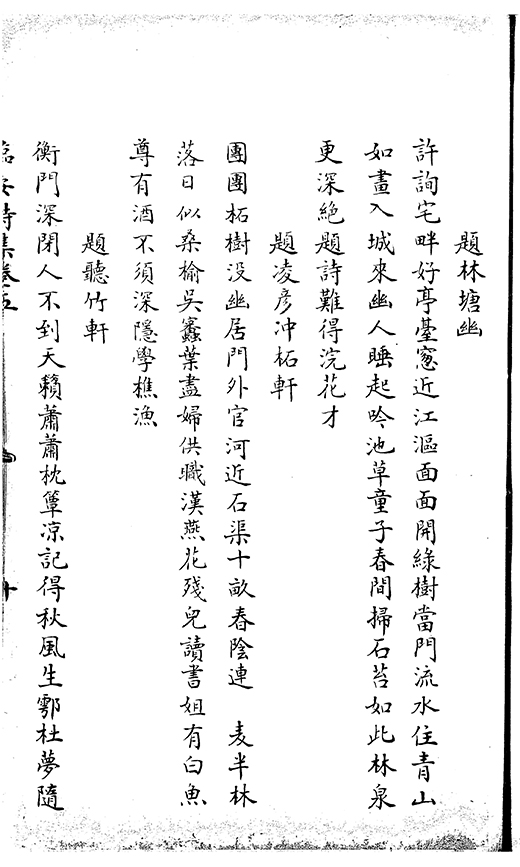 題林塘幽
許詢宅畔好亭臺窻近江漚面面開綠樹當門流水住青山
如畫入城來幽人睡起吟池草童子春間掃石苔如此林泉
更深絕題詩難得浣花才
題凌彦冲柘軒
團團柘樹没幽居門外官河近石渠十畝春陰連 麦半林
落日似桑榆吴蠶葉盡婦供職漢燕花殘兒讀書姐有白魚
尊有酒不須深隱學樵漁
題聽竹軒
衡門深閉人不到天籟蕭蕭枕簟凉記得秋風生鄠杜夢隨
臨安詩集卷五
十